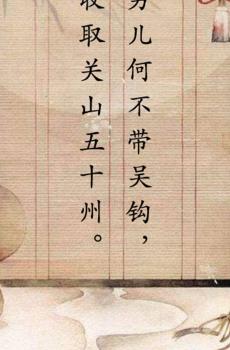 男儿何不带吴钩，
收取关山五十州。